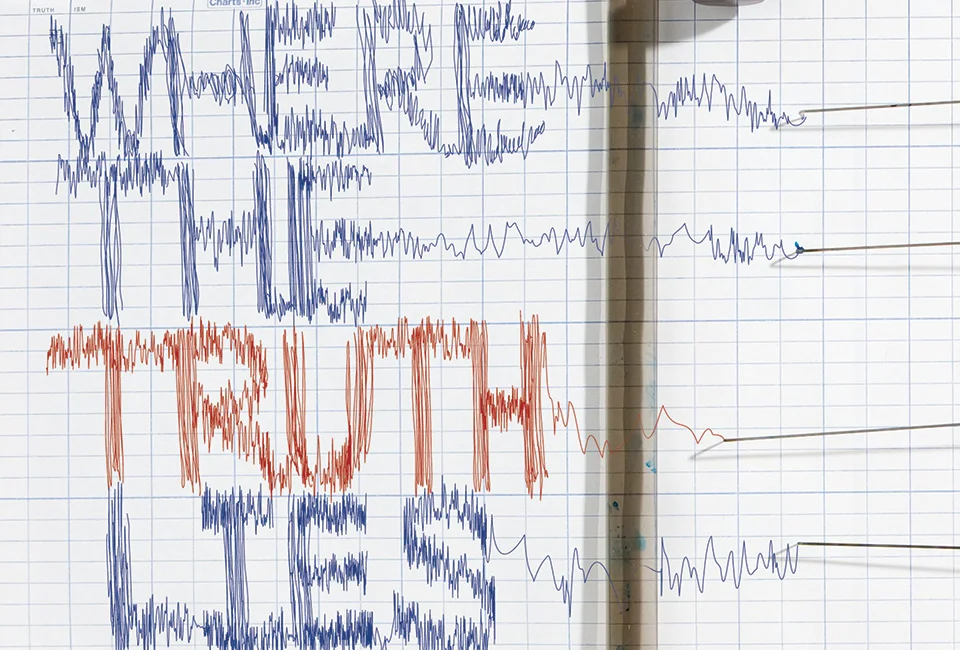 TRUTH ISM
Charts - Inc
WHERE
THE
TRUTH
LIES